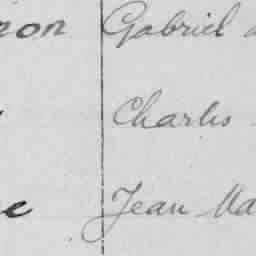 non Gabriel
Charles
Jean Ma